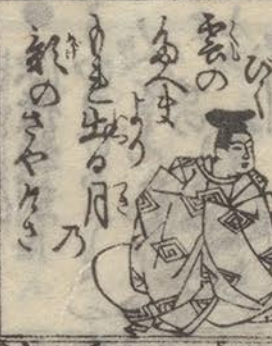 びく
雲の
たへま
より
もれ出る月
乃
影のさやけさ